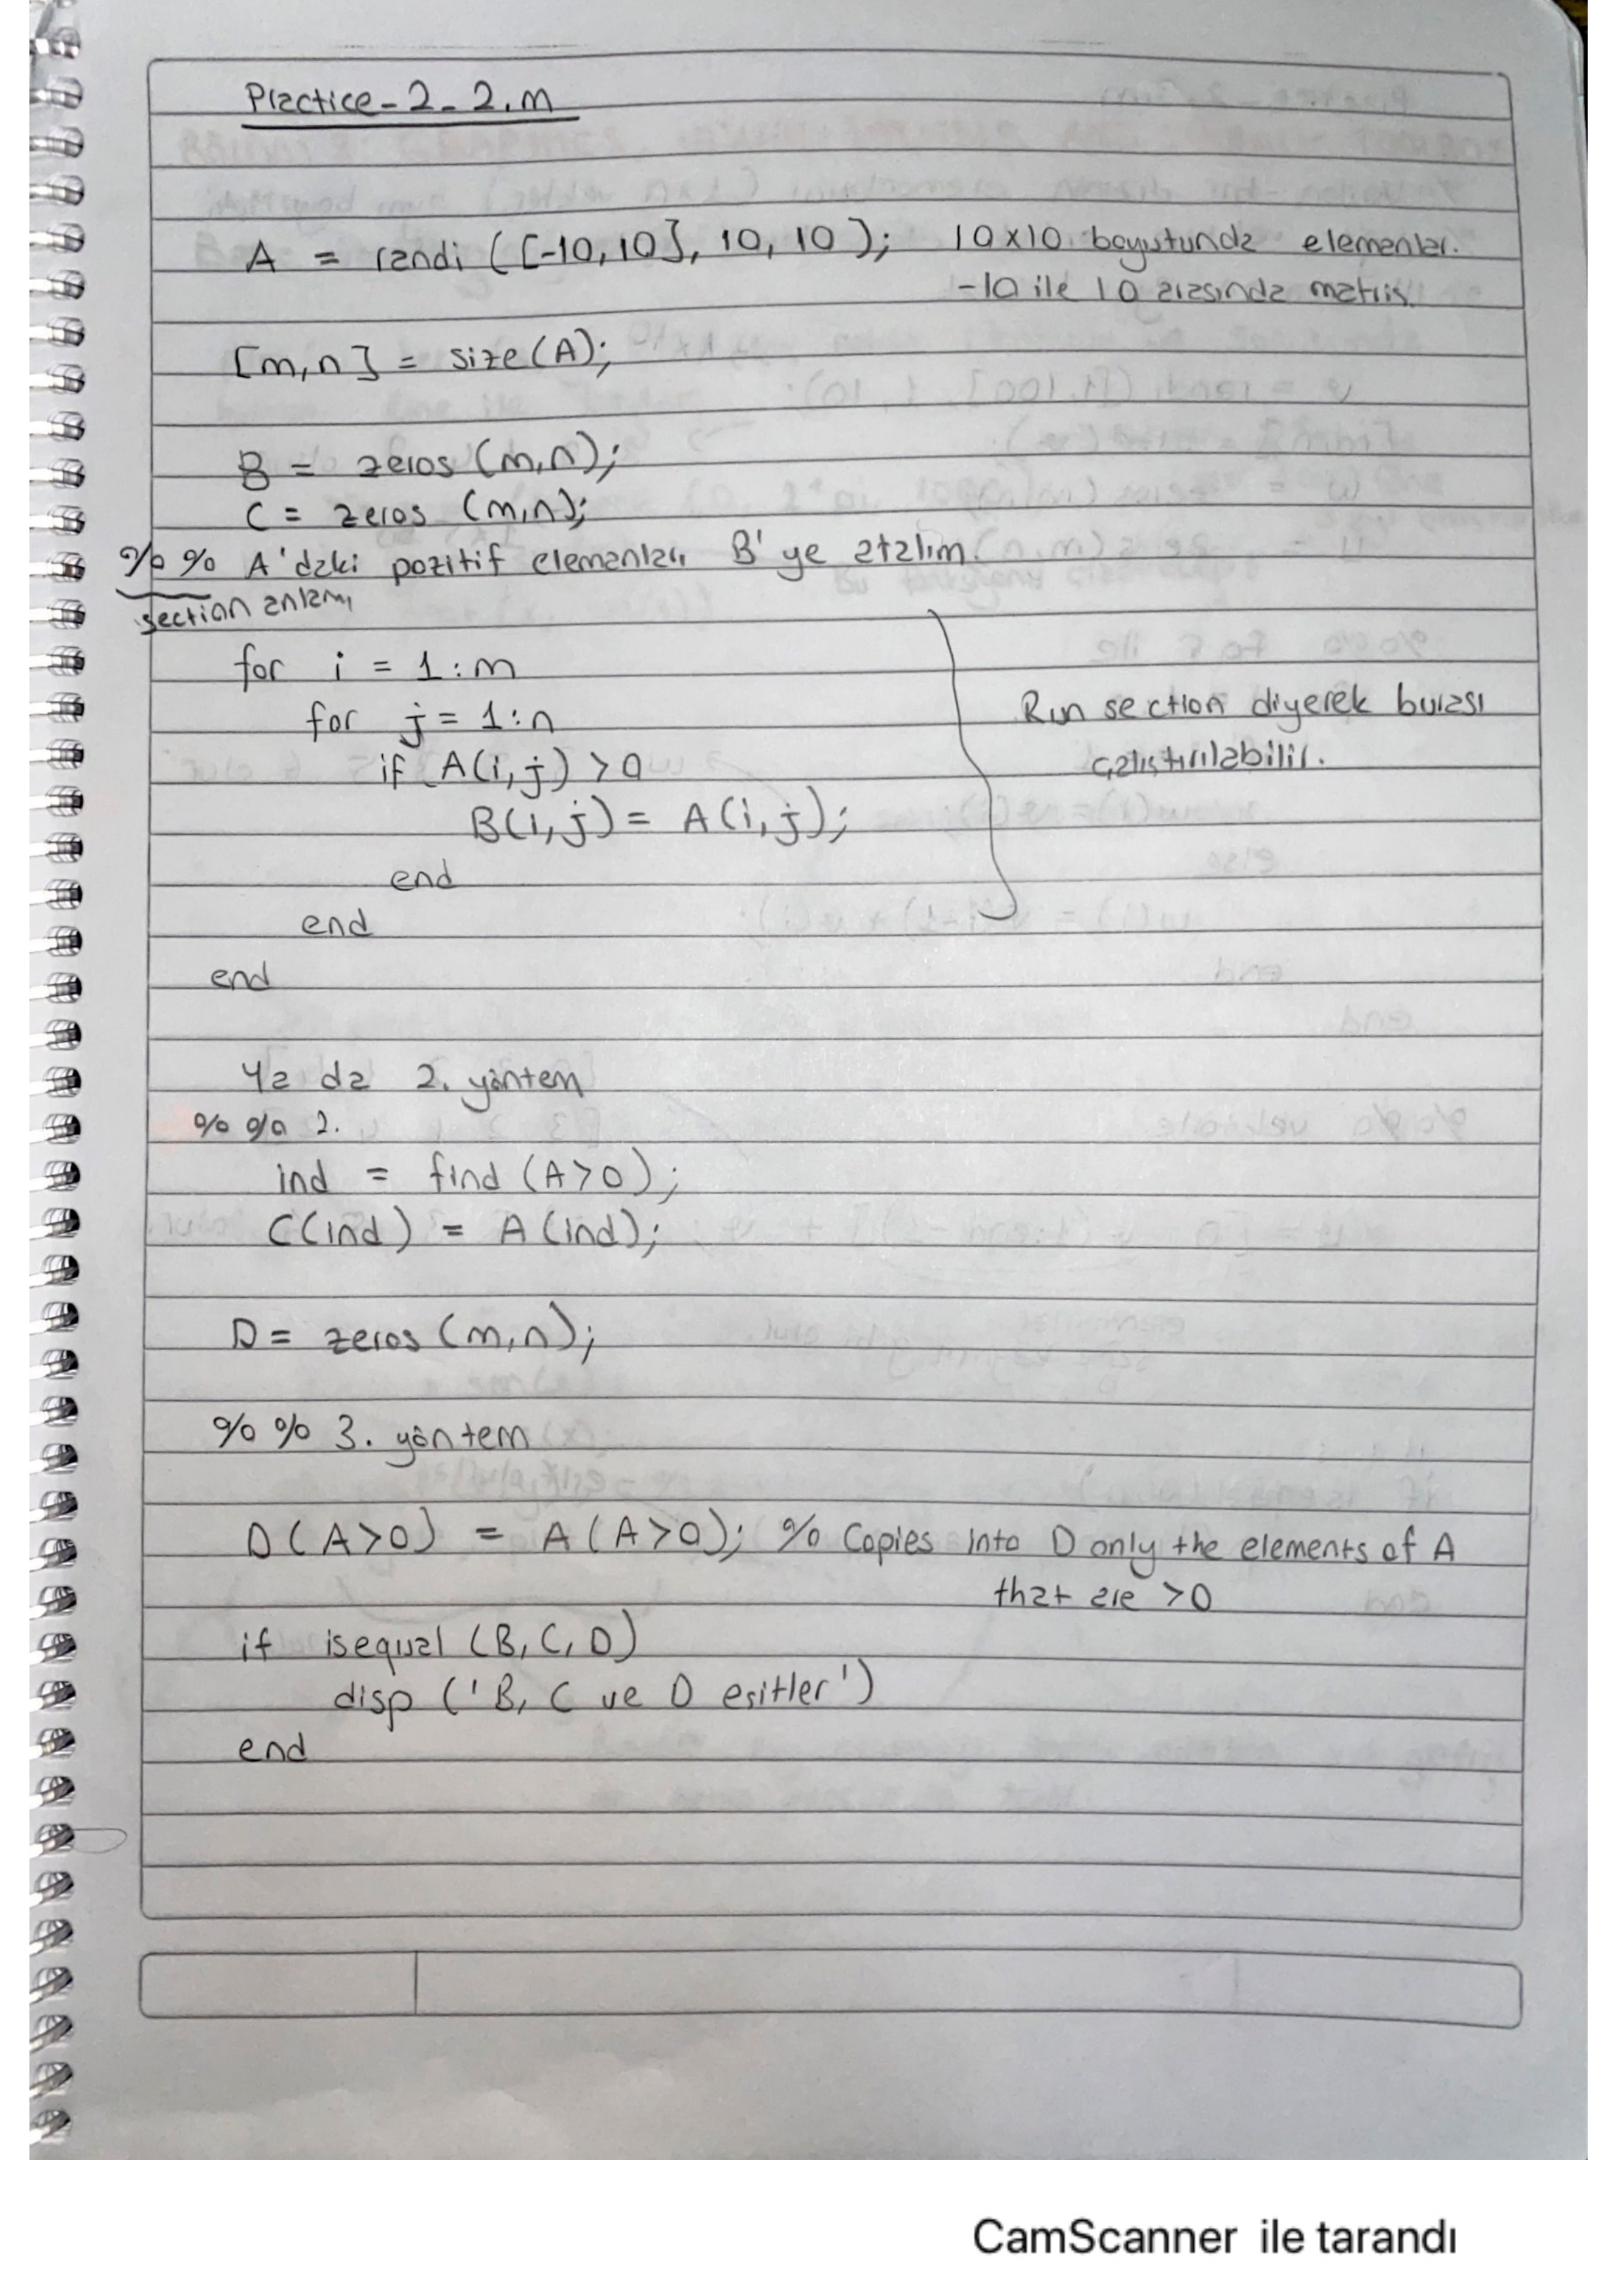 Practice-2-2.m
A = randi ([-10,10], 10, 10); 10x10 boyutunda elemanları
-10 ile 10 arasında matris.
[m,n] = size(A);
B = zeros (m,n);
C = zeros (m,n);
%% A'daki pozitif elemanları B'ye atalım.
section anlamı
for i = 1:m
for j = 1:n
if A(i,j) >0
B(i,j) = A(i,j);
end
end
end
Run section diyerek burası
çalıştırılabilir.
Ya da 2. yöntem
%% 2.
ind = find (A>0);
C(ind) = A(ind);
D = zeros (m,n);
%% 3. yöntem
D(A>0) = A(A>0); % Copies into D only the elements of A
that are >0
if isequal (B,C,D)
disp ('B, C ve D esitler')
end
CamScanner ile tarandı